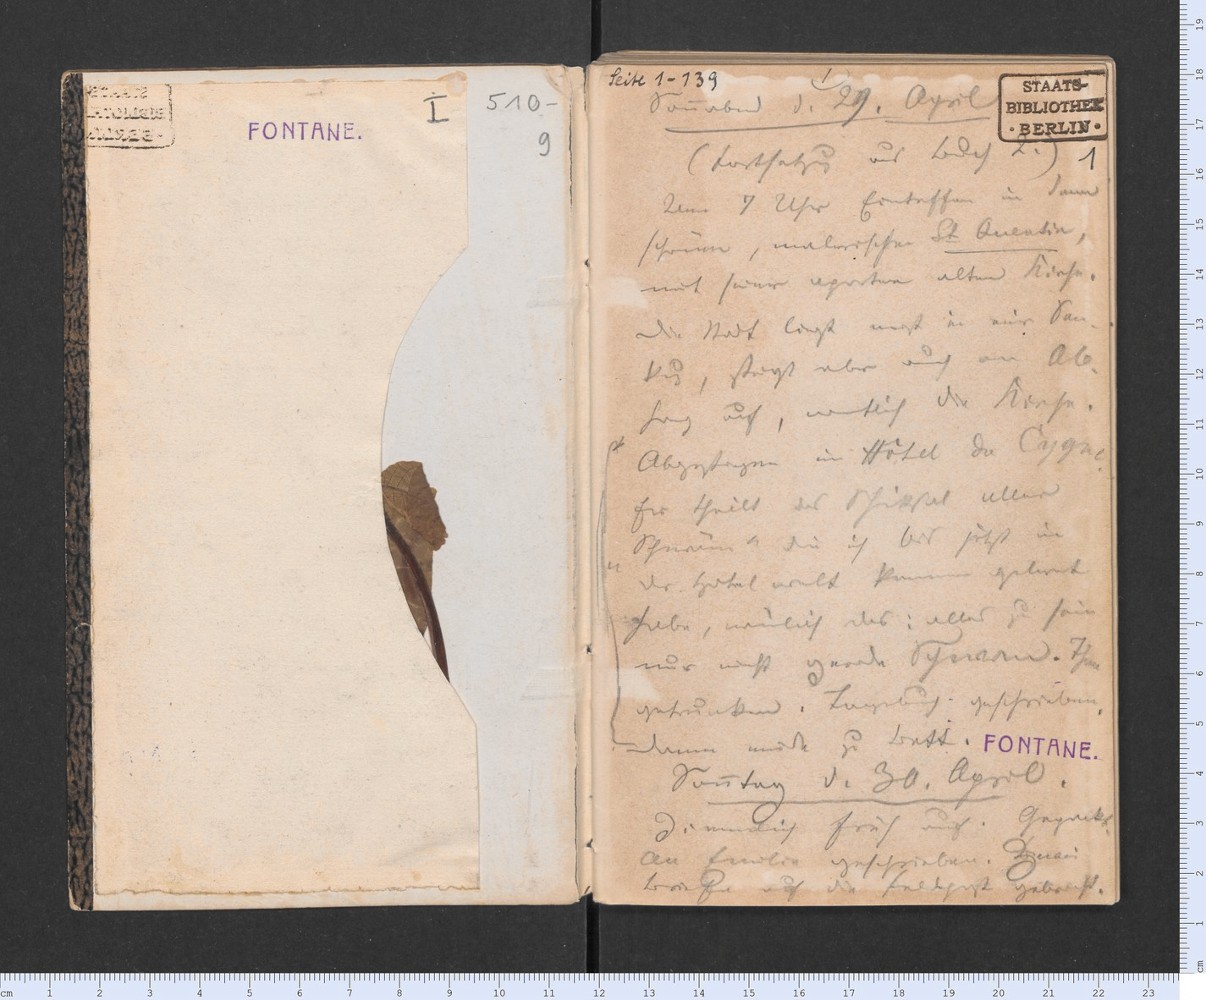 I
510-
9
FONTANE.
Seite 1-139
1
STAATS-
BIBLIOTHEK
·BERLIN·
Sonnabend d. 29. April
(Fortsetzung aus Buch 2.)
1
Um 7 Uhr Eintreffen in dem
schönen, malerischen St Quentin,
mit seiner aparten alten Kirche.
Die Stadt liegt meist in einer Sen-
kung, steigt aber auch am Ab-
hang auf, namentlich die Kirche.
Abgestiegen im Hôtel du Cygne.
Er theilt das Schicksal aller
"Schwäne" die ich bis jetzt in
der Hotel welt kennen gelernt
habe, nämlich das: alles zu sein
nur nicht gerade Schwan. Thee
getrunken. Tagebuch geschrieben,
dann müde zu Bett.
FONTANE.
Sonntag d. 30. April.
Ziemlich früh auf. Gepackt.
An Emilie geschrieben. Zwei
Briefe auf die Feldpost gebracht.